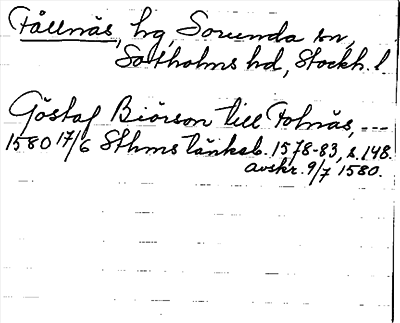 Fållnäs, hg, Sorunda sn,
Sotholms hd, Stockh. l
Göstaf Biörson till Folnäs, ---
1580 17/6 Sthms tänkeb. 1578-83, s. 148.
avskr. 9/7 1580.